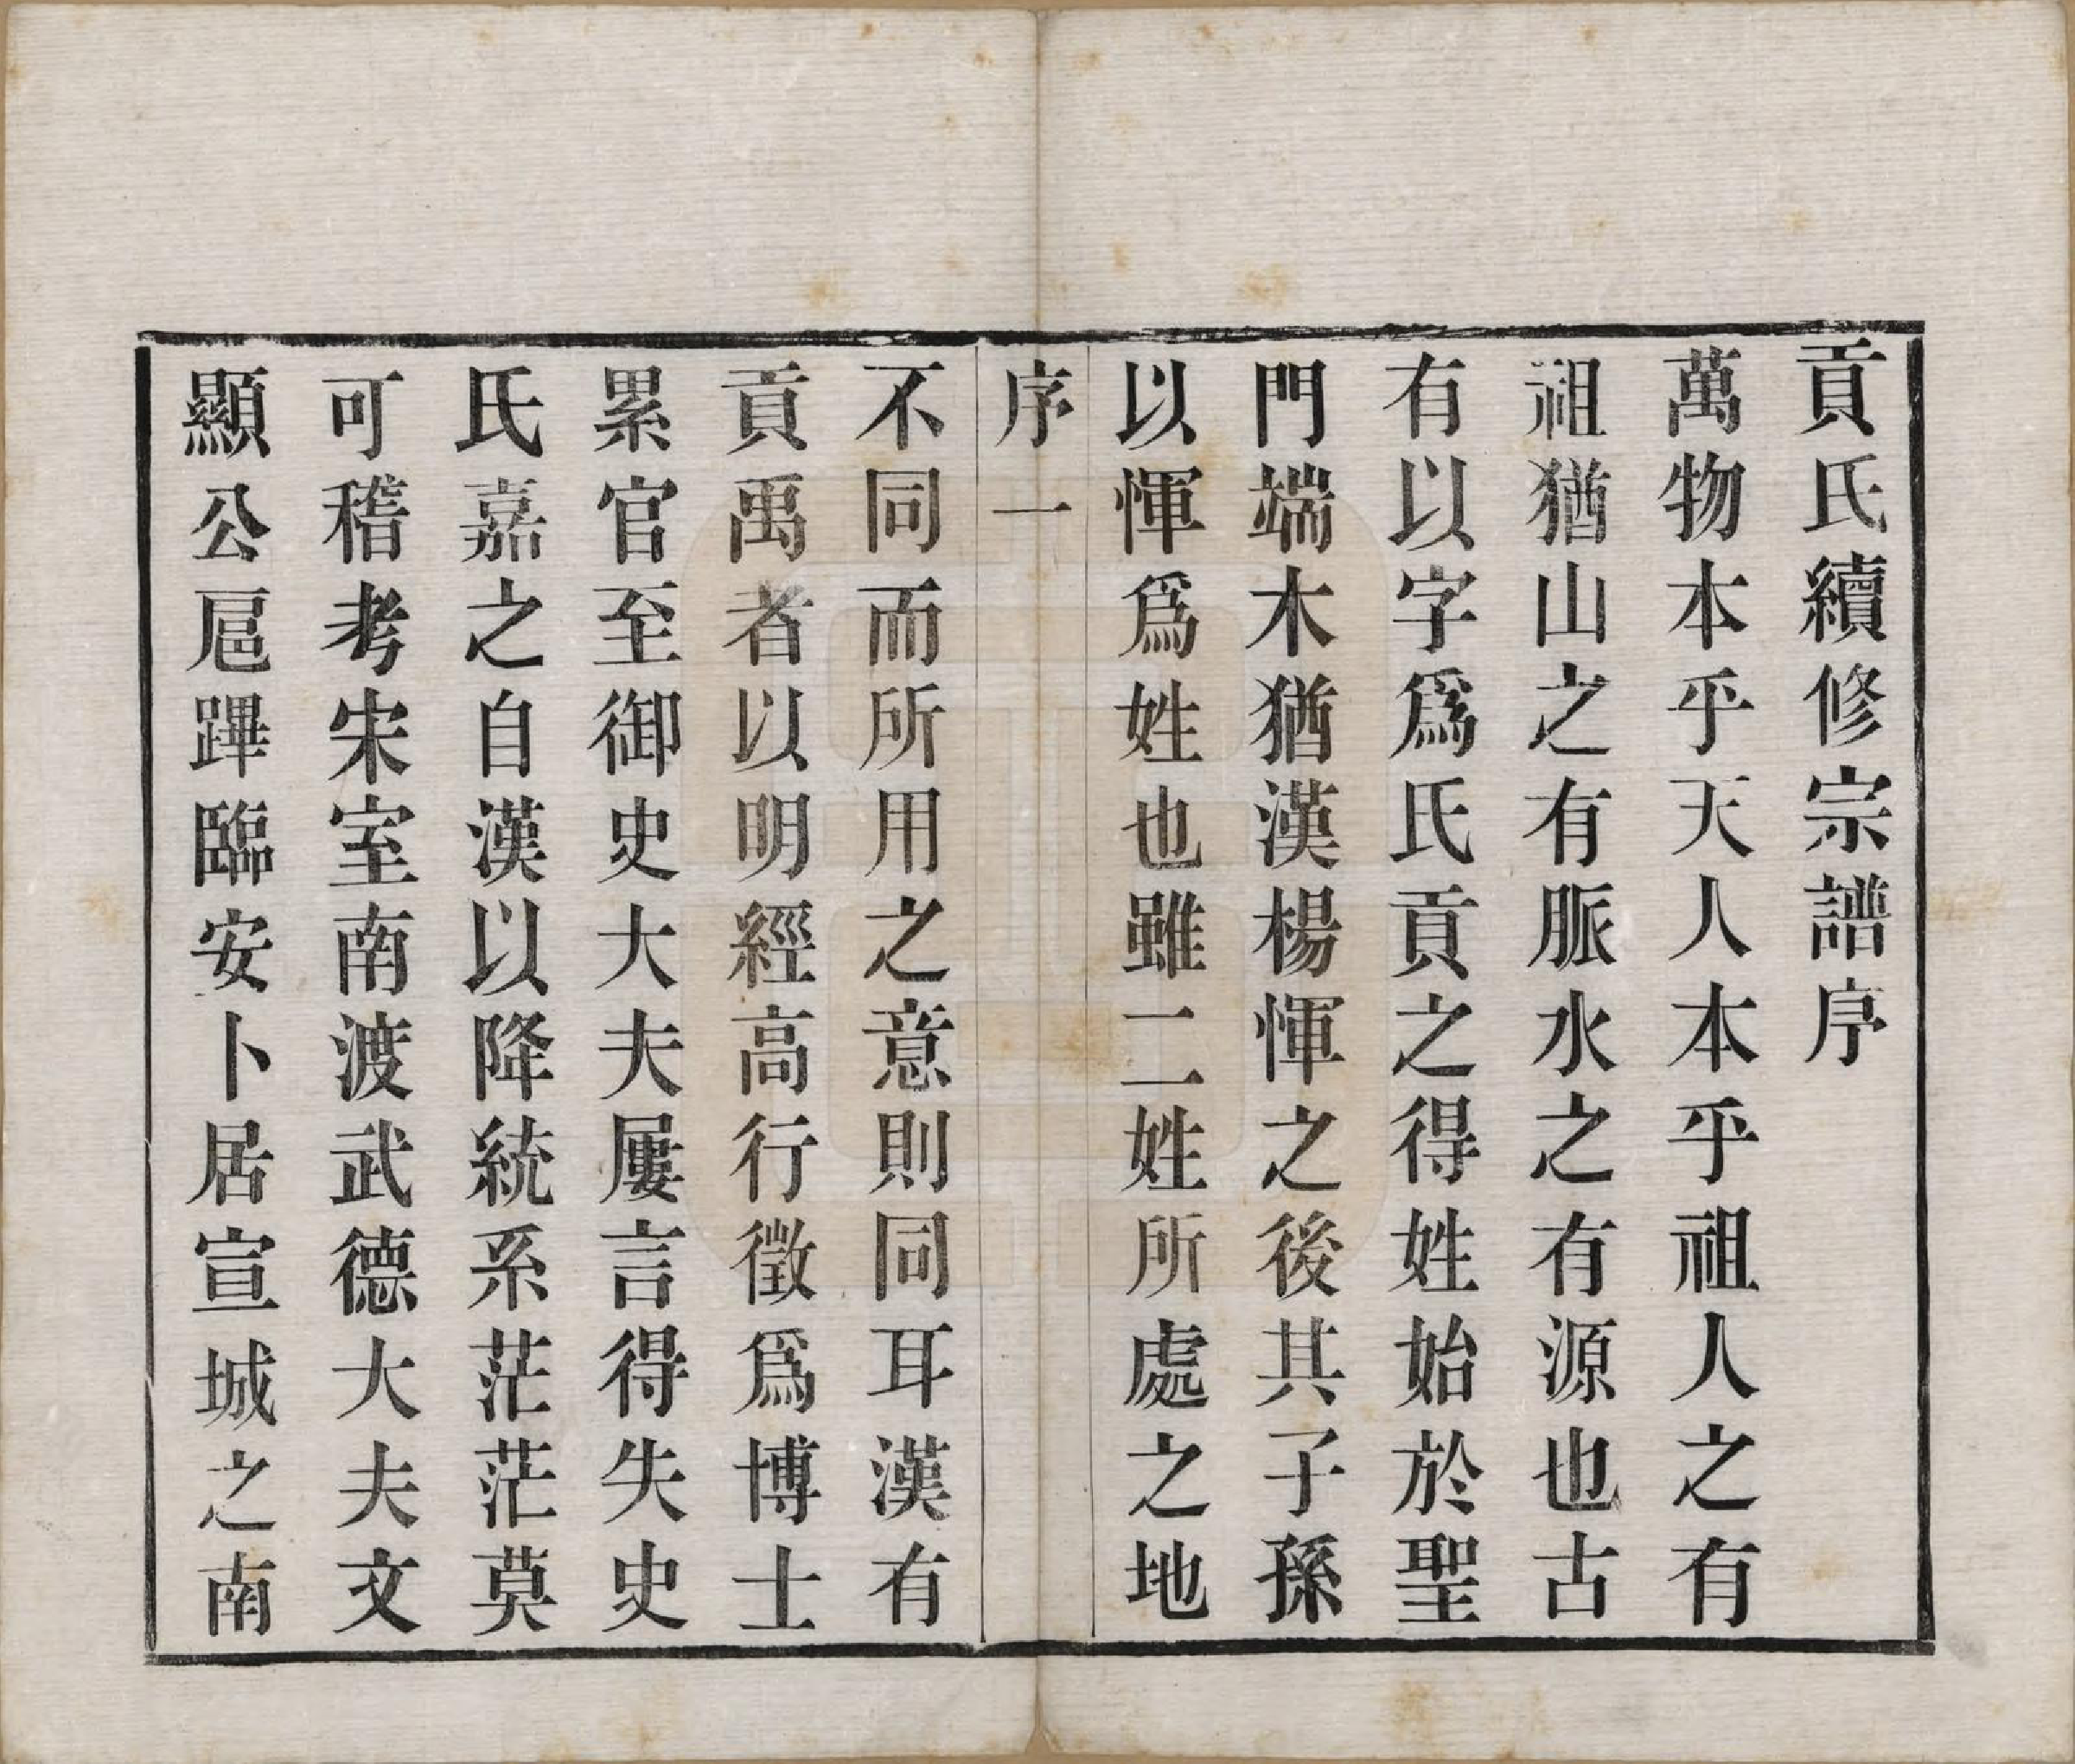 貢氏續修宗譜序
萬物本乎天人本乎祖人之有
祖猶山之有脈水之有源也古
有以字爲氏貢之得姓始於聖
門端木猶漢楊惲之後其子孫
以惲爲姓也雖二姓所處之地
序一
不同而所用之意則同耳漢有
貢禹者以明經高行徵爲博士
累官至御史大夫屢言得失史
氏嘉之自漢以降統系茫茫莫
可稽考宋室南渡武德大夫文
顯公扈蹕臨安卜居宣城之南